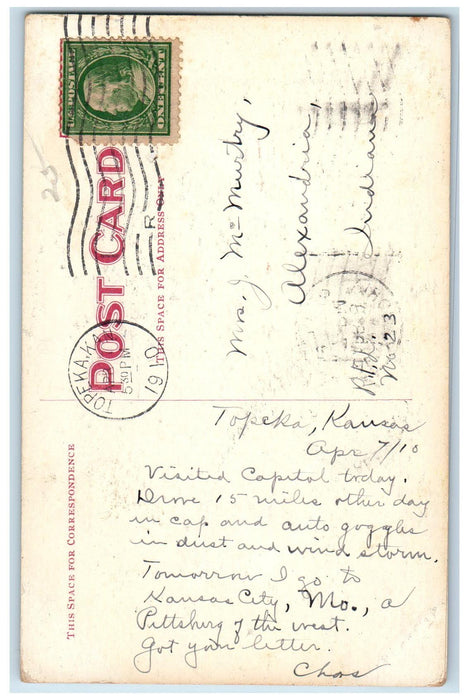 U.S. POSTAGE
ONE CENT
POST CARD
THIS SPACE FOR ADDRESS ONLY
TOPEKA, KA
5 30 PM
1910
R
25
Mrs. J. McMurtry,
Alexandria,
Indiana
R.F.D.
No 23
THIS SPACE FOR CORRESPONDENCE
Topeka, Kansas
Apr 7/10
Visited Capitol today.
Drove 15 miles other day
in cap and auto goggles
in dust and wind storm.
Tomorrow I go to
Kansas City, Mo., a
Pittsburg of the west.
Got your letter.
Chas